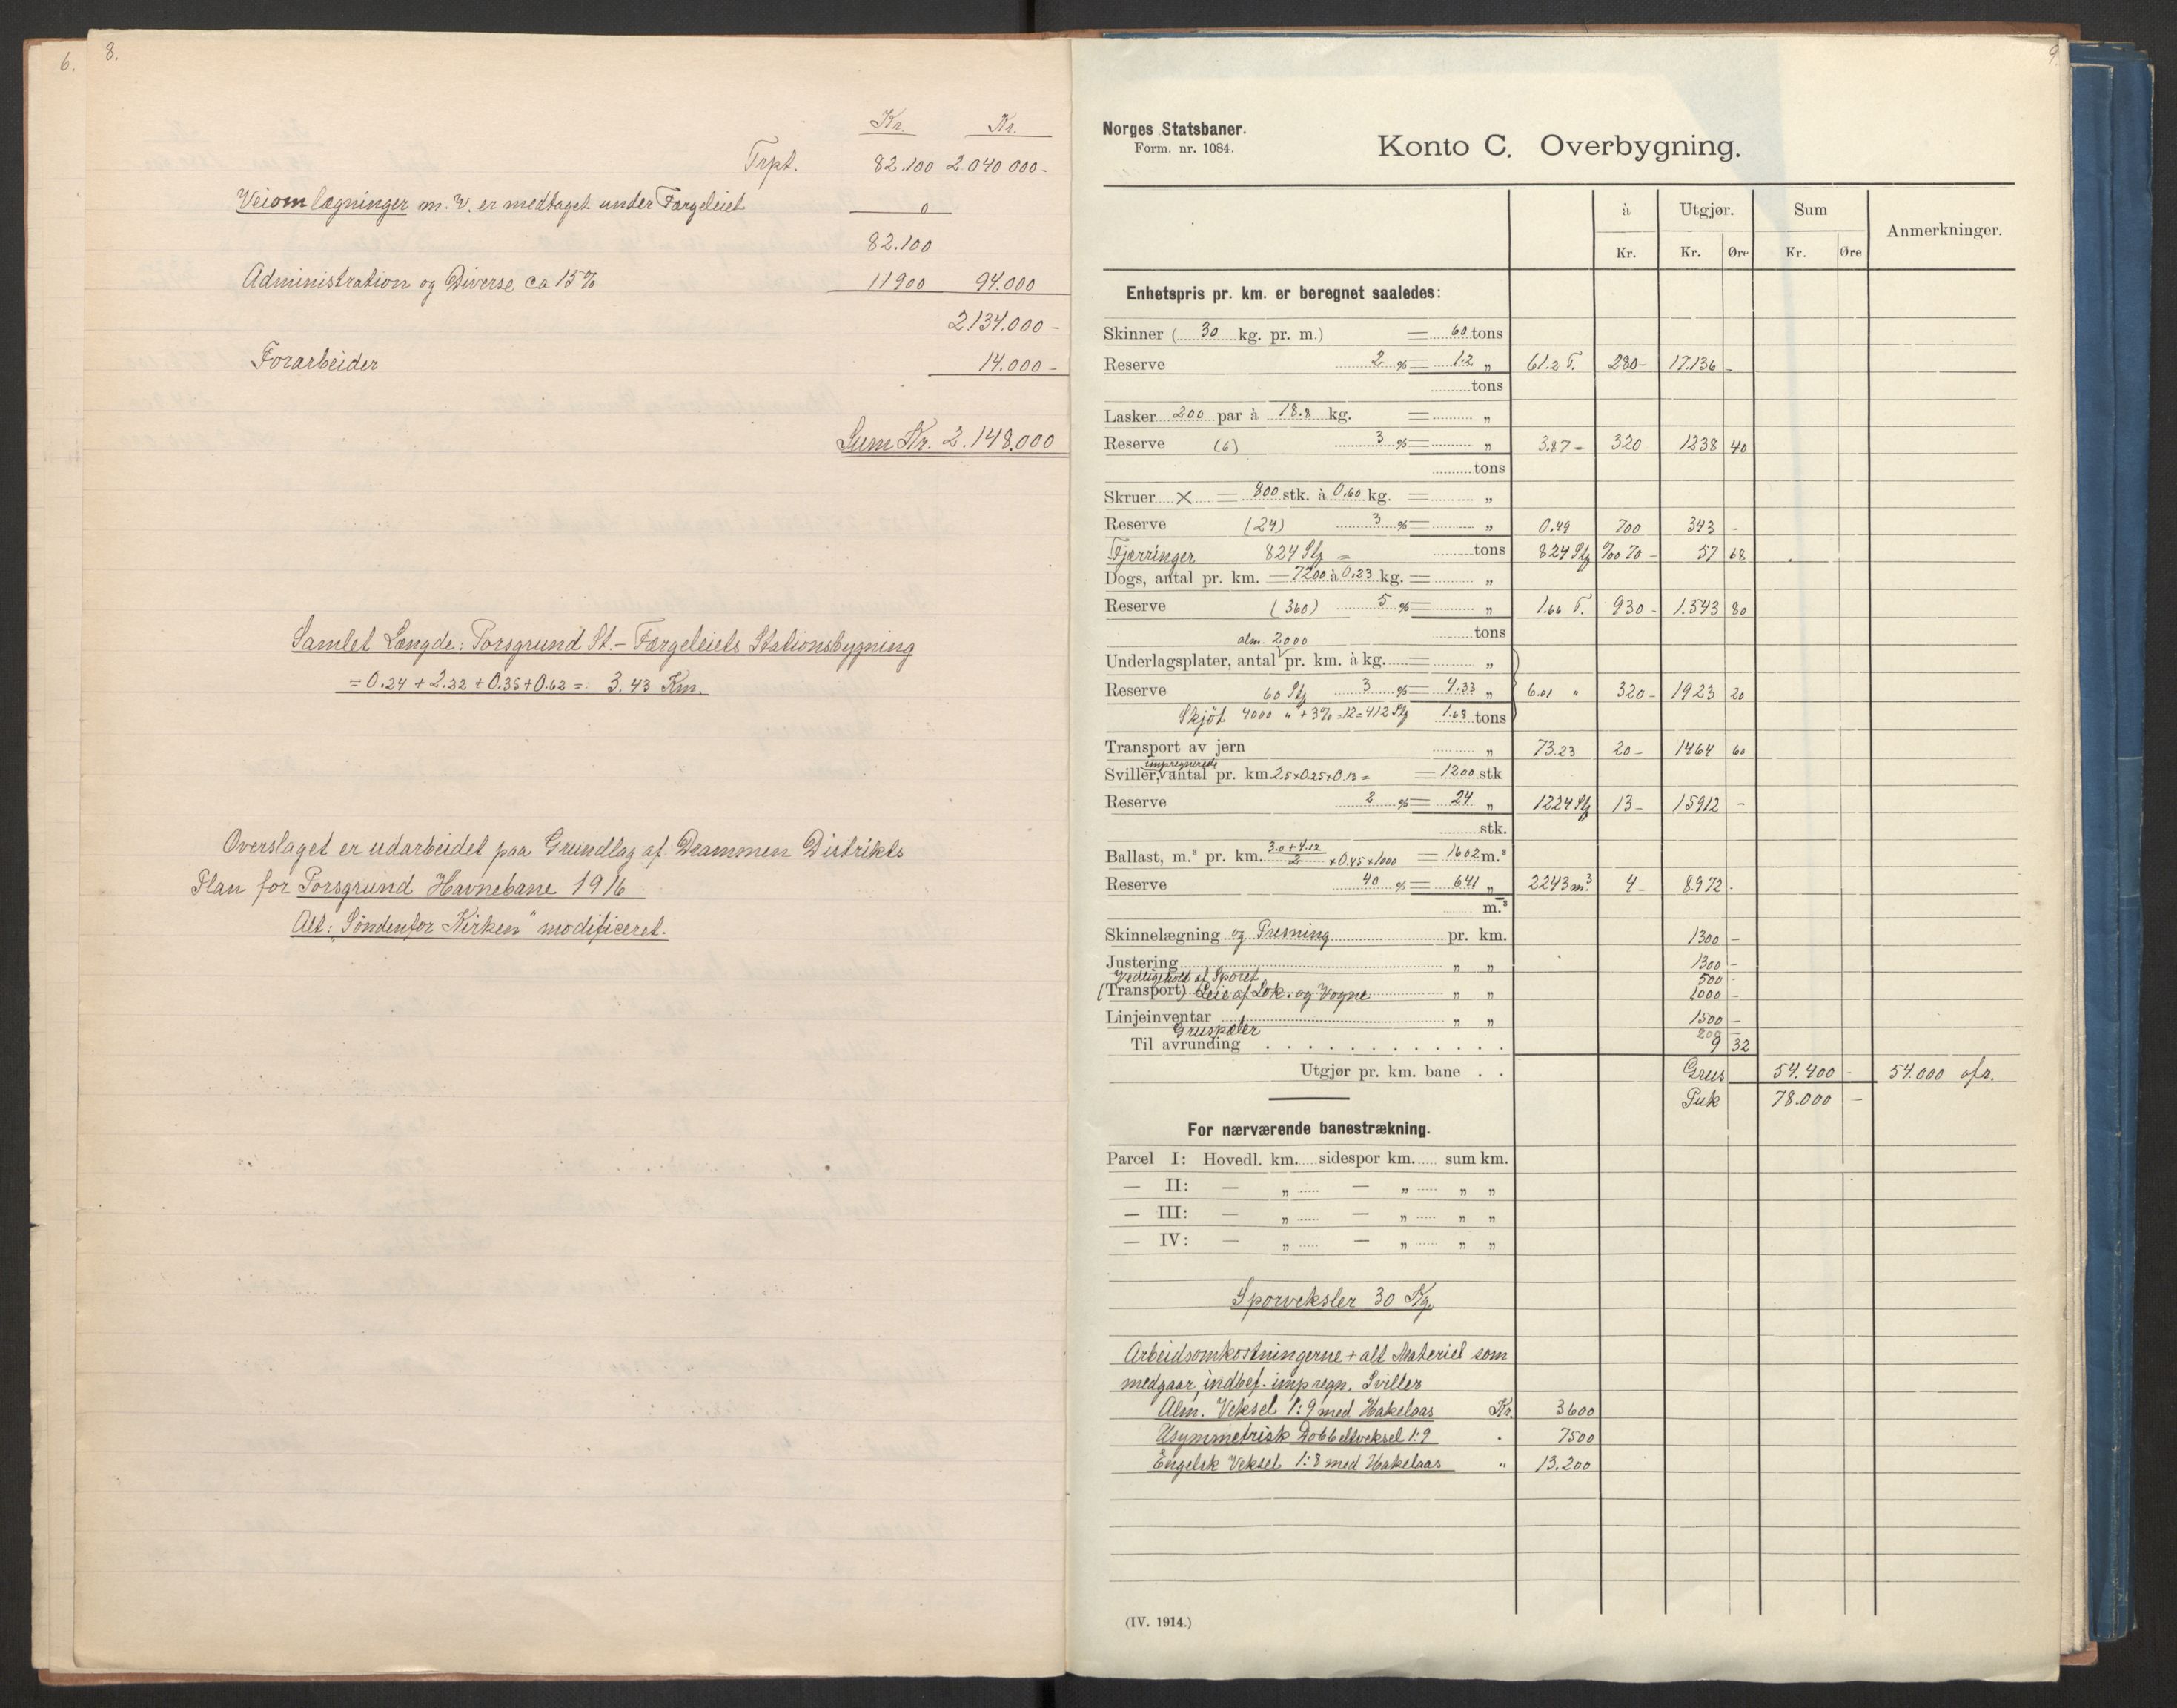 6.
8.
Kr. Kr.
Trpt. 82.100 2.040 000-
Veiomlægninger m. V. er medtaget under Færgeleiet 0
82.100
Administration og Diverse ca 15% 11900 94.000
2134.000 -
Forarbeider 14.000 -
Sum Kr. 2.148.000
Samlet Længde: Porsgrund St.- Færgeleiets Stationsbygning
= 0.24 + 2.22 + 0.35 + 0.62 = 3.43 Km.
Overslaget er udarbeidet paa Grundlag af Drammen Distrikts
Plan for Porsgrund Havnebane 1916
Alt: „Söndenfor Kirken" modificeret.
9.
Norges Statsbaner.
Form. nr. 1084.
Konto C. Overbygning.
à Utgjør. Sum Anmerkninger.
Kr. Kr. Øre Kr. Øre
Enhetspris pr. km. er beregnet saaledes:
Skinner ( 30 kg. pr. m.) = 60 tons
Reserve 2 % = 1.2 „ 61.2 T. 280- 17.136 -
tons
Lasker 200 par à 18.8 kg. = „
Reserve (6) 3 % = „ 3.87 - 320 1238 40
tons
Skruer X = 800 stk. à 0.60 kg. = „
Reserve (24) 3 % = „ 0.49 700 343 -
Fjærringer 824 Stk = tons 824 Stk %0 70 - 57 68
Dogs, antal pr. km. = 7200 à 0.23 kg. = „
Reserve (360) 5 % = „ 1.66 T. 930 - 1.543 80
alm. 2000 tons
Underlagsplater, antal pr. km. à kg. = „
Reserve 60 Stk 3 % = 4.33 „ 6.01 " 320- 1923 20
Skjöt 4000 " + 3% = 12 = 412 Stk 1.68 tons
Transport av jern „ 73.23 20- 1464 60
impregnerede
Sviller, antal pr. km 2.5 x 0.25 x 0.13 = = 1200 stk
Reserve 2 % = 24 „ 1224 Stk 13- 15912 -
stk.
Ballast, m.³ pr. km. 3.0 + 4.12 / 2 x 0.45 x 1000 = 1602 m.³
Reserve 40 % = 641 „ 2243 m.³ 4- 8.972 -
m.³
Skinnelægning og Presning pr. km. 1300 -
Justering „ „ 1300 -
Vedligehold af Sporet 500 -
(Transport) Leie af Lok. og Vogne „ „ 1000 -
Linjeinventar „ „ 1500 -
Gruspæler 200 -
Til avrunding 9 32
Utgjør pr. km. bane Grus 54.400 - 54.000 afr.
Puk 78.000 -
For nærværende banestrækning.
Parcel I: Hovedl. km. sidespor km. sum km.
— II: — „ — „ „ „
— III: — „ — „ „ „
— IV: — „ — „ „ „
Sporveksler 30 Kg.
Arbeidsomkostningerne + alt Materiel som
medgaar, indbef. impregn. Sviller
Alm. Veksel 1:9 med Hakelaas Kr. 3600
Usymmetrisk Dobbeltveksel 1:9 " 7500
Engelsk Veksel 1:8 med Hakelaas " 13.200
(IV. 1914.)